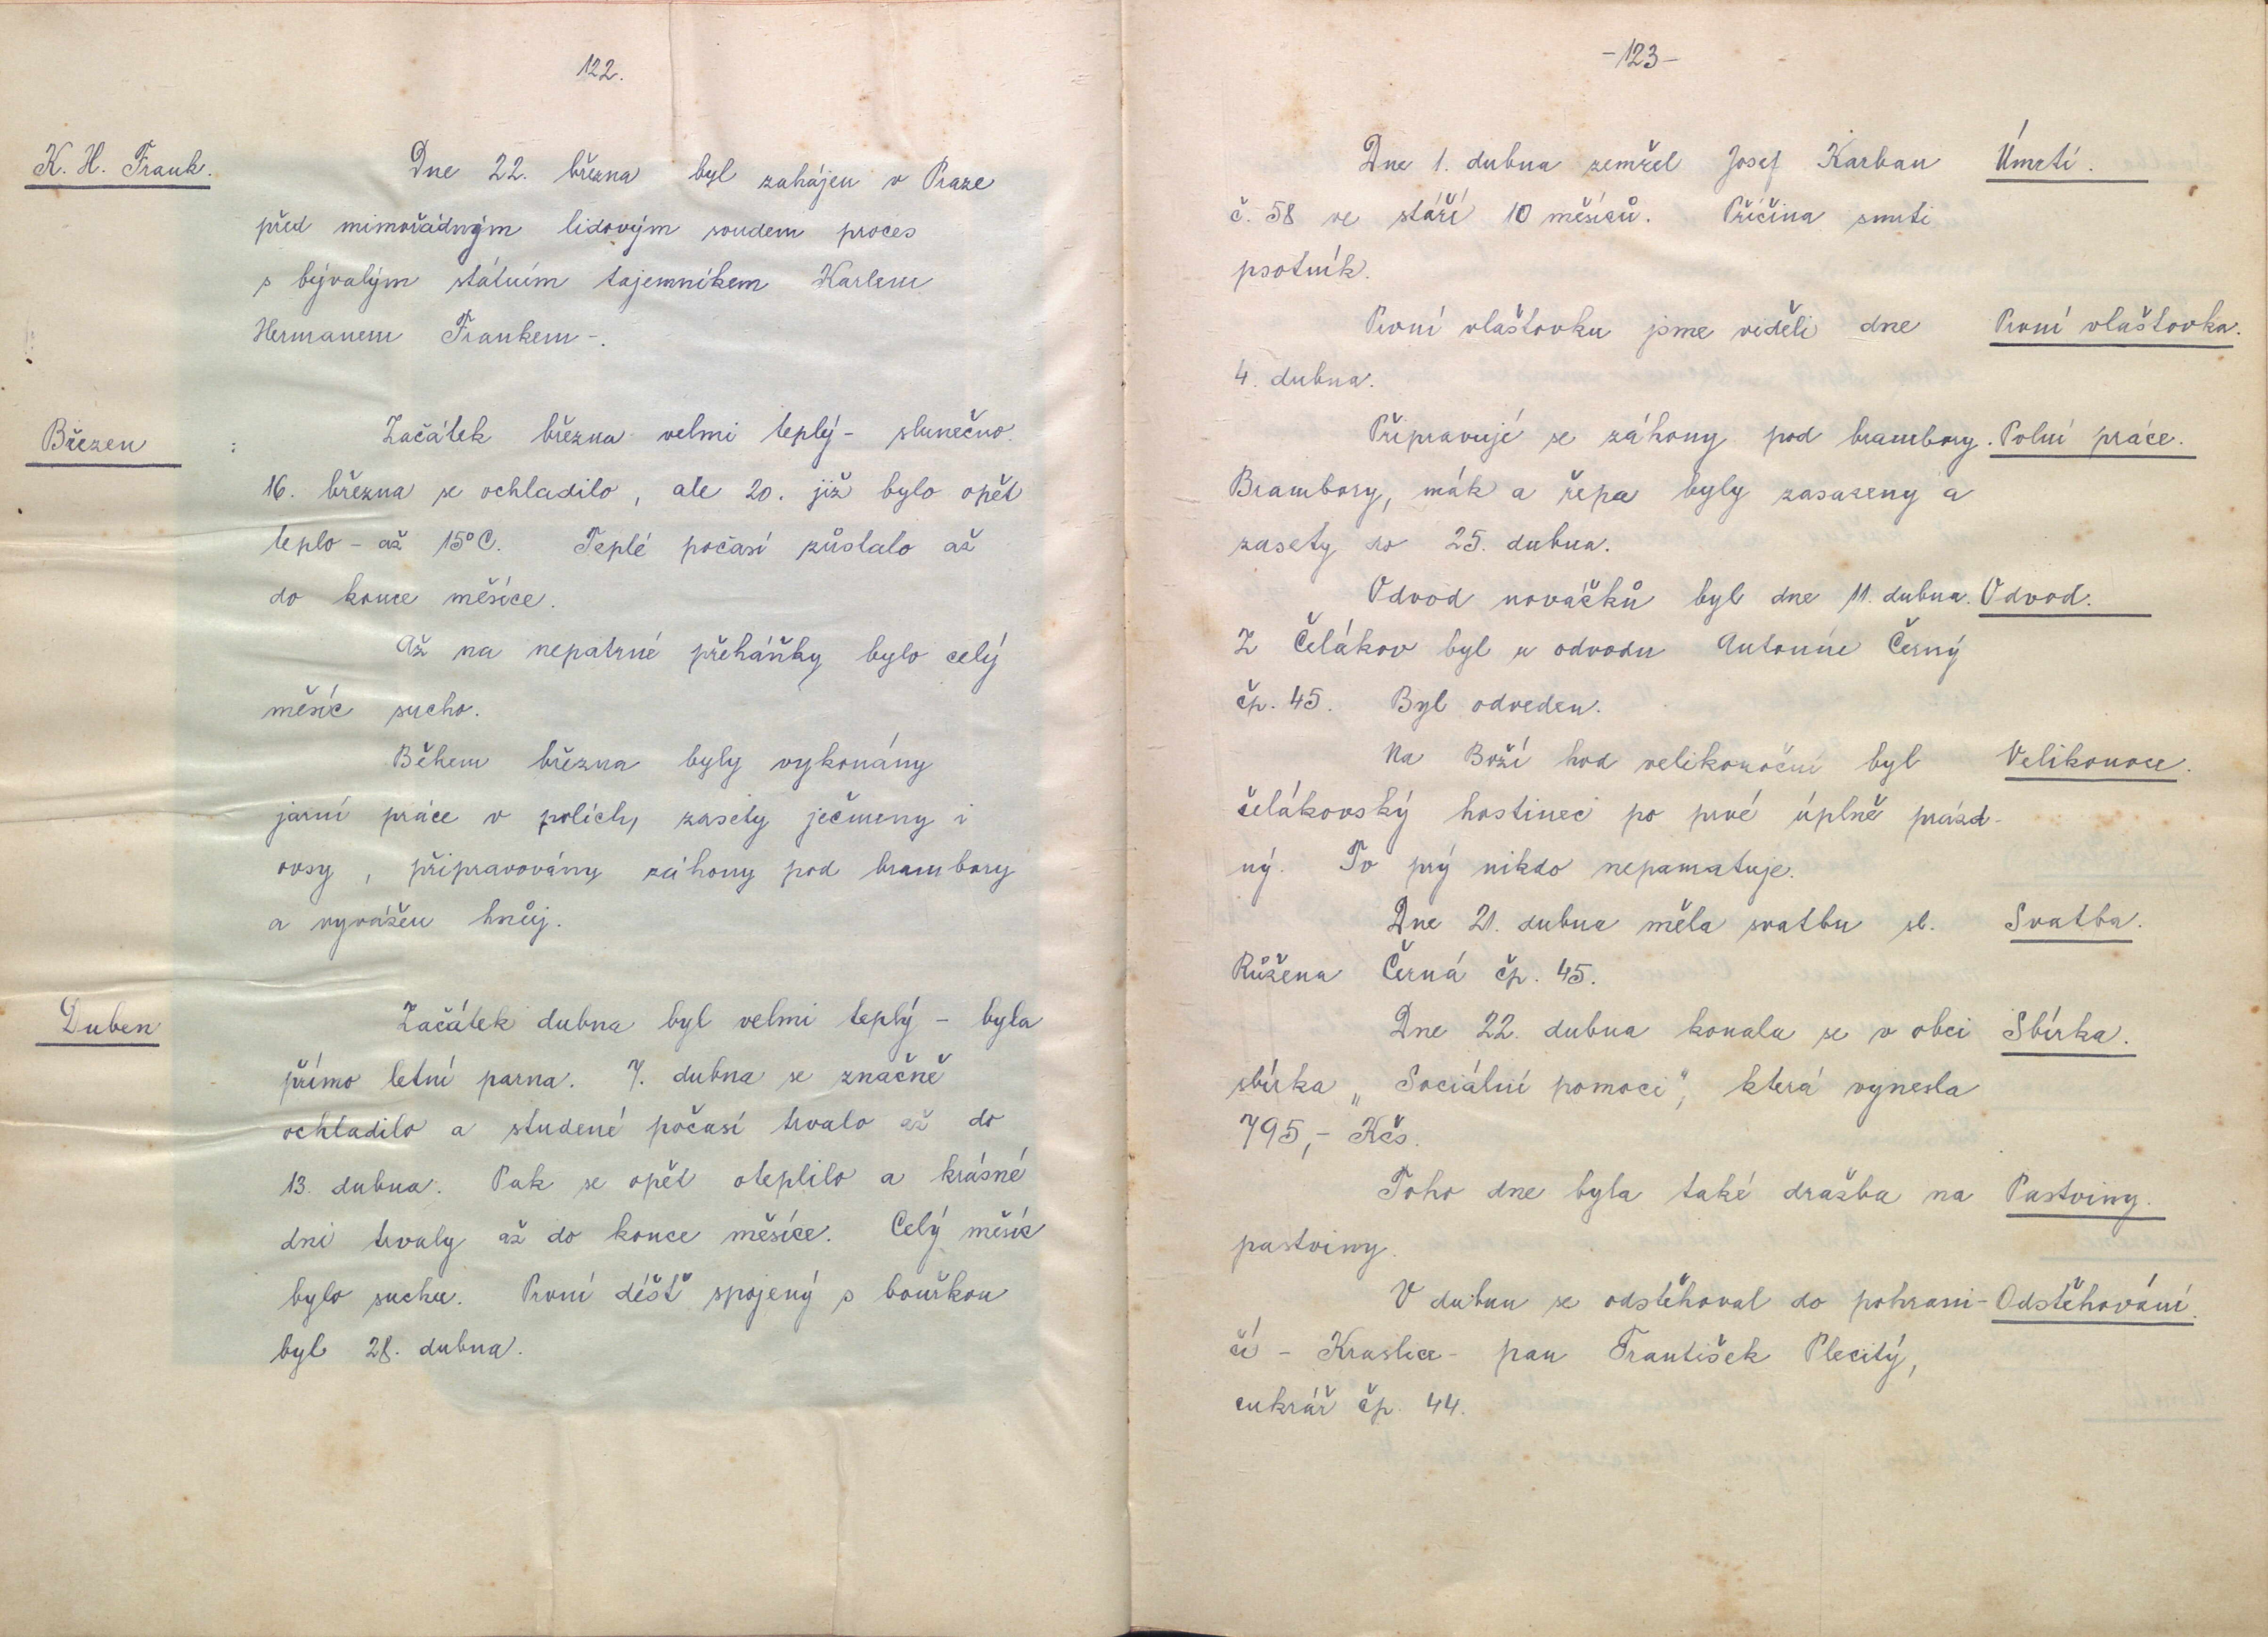 122.
K. H. Frank.
Dne 22. března byl zahájen v Praze
před mimořádným lidovým soudem proces
s bývalým státním tajemníkem Karlem
Hermanem Frankem-.
Březen :
Začátek března velmi teplý - slunečno.
16. března se ochladilo, ale 20. již bylo opět
teplo - až 15° C. Teplé počasí zůstalo až
do konce měsíce.
Až na nepatrné přeháňky bylo celý
měsíc sucho.
Během března byly vykonány
jarní práce v polích, zasety ječmeny i
ovsy, připravovány záhony pod brambory
a vyvážen hnůj.
Duben
Začátek dubna byl velmi teplý - byla
přímo letní parna. 7. dubna se značně
ochladilo a studené počasí trvalo až do
13. dubna. Pak se opět oteplilo a krásné
dni trvaly až do konce měsíce. Celý měsíc
bylo sucho. První déšť spojený s bouřkou
byl 28. dubna.
-123-
Dne 1. dubna zemřel Josef Karban Úmrtí.
č. 58 ve stáří 10 měsíců. Příčina smrti
psotník.
První vlaštovku jsme viděli dne První vlaštovka.
4. dubna.
Připravují se záhony pod brambory. Polní práce.
Brambory, mák a řepa byly zasazeny a
zasety do 25. dubna.
Odvod nováčků byl dne 11. dubna. Odvod.
Z Čelákov byl u odvodu Antonín Černý
čp. 45. Byl odveden.
Na Boží hod velikonoční byl Velikonoce.
čelákovský hostinec po prvé úplně prázd-
ný. To prý nikdo nepamatuje.
Dne 21. dubna měla svatbu sl. Svatba.
Růžena Černá čp. 45.
Dne 22. dubna konala se v obci Sbírka.
sbírka „Sociální pomoci", která vynesla
795,- Kčs.
Toho dne byla také dražba na Pastviny.
pastviny.
V dubnu se odstěhoval do pohrani- Odstěhování.
čí - Kraslice - pan František Plecitý,
cukrář čp. 44.